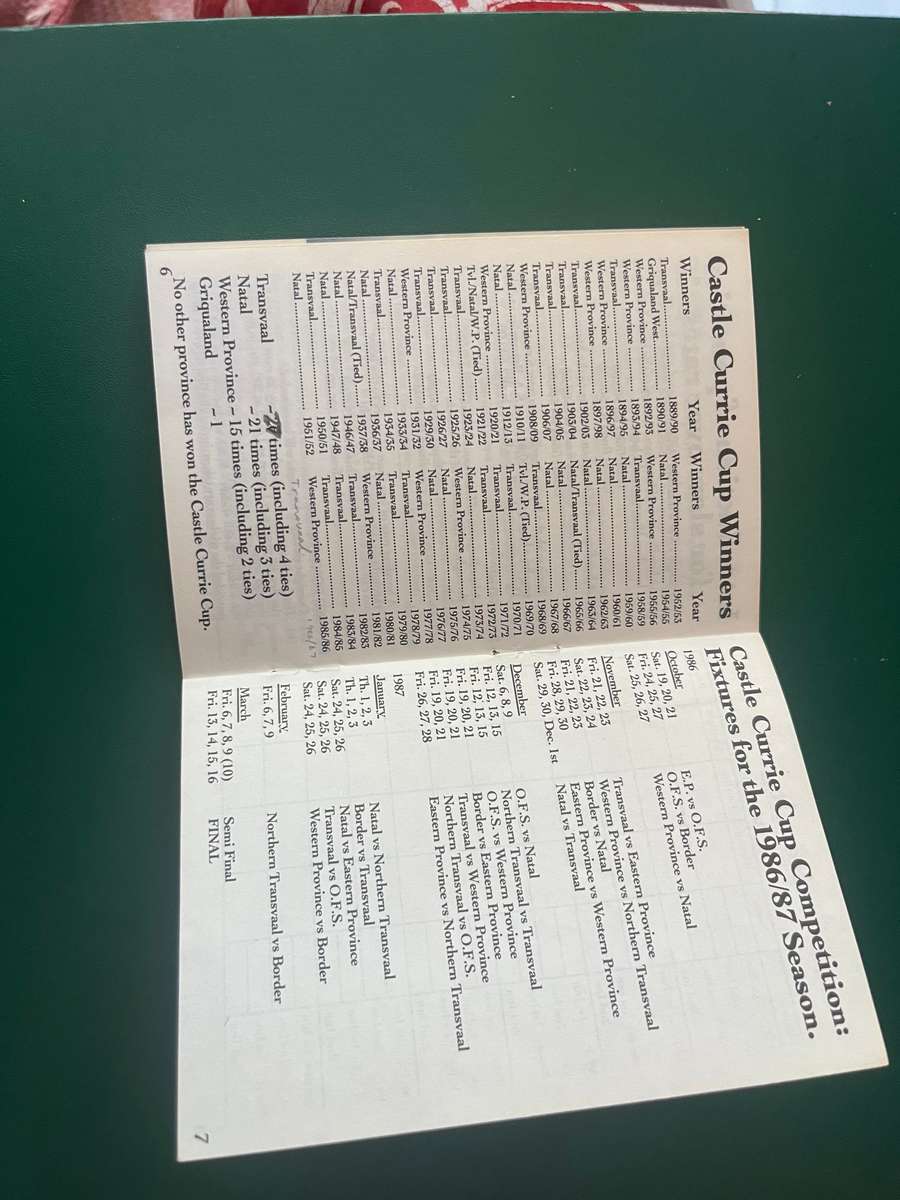 Castle Currie Cup Winners
Winners Year Winners Year
Transvaal 1889/90 Western Province 1952/53
Griqualand West 1890/91 Natal 1954/55
Western Province 1892/93 Western Province 1955/56
Western Province 1893/94 Transvaal 1958/59
Transvaal 1894/95 Natal 1959/60
Western Province 1896/97 Natal 1960/61
Western Province 1897/98 Natal 1962/63
Transvaal 1902/03 Natal 1963/64
Transvaal 1903/04 Natal/Transvaal (Tied) 1965/66
Transvaal 1904/05 Natal 1966/67
Transvaal 1906/07 Natal 1967/68
Western Province 1908/09 Transvaal 1968/69
Natal 1910/11 Tvl./W.P. (Tied) 1969/70
Natal 1912/13 Transvaal 1970/71
Western Province 1920/21 Transvaal 1971/72
Tvl./Natal/W.P. (Tied) 1921/22 Transvaal 1972/73
Transvaal 1923/24 Natal 1973/74
Transvaal 1925/26 Western Province 1974/75
Transvaal 1926/27 Natal 1975/76
Transvaal 1929/30 Natal 1976/77
Western Province 1931/32 Western Province 1977/78
Natal 1933/34 Transvaal 1978/79
Transvaal 1934/35 Transvaal 1979/80
Natal 1936/37 Natal 1980/81
Natal/Transvaal (Tied) 1937/38 Western Province 1981/82
Natal 1946/47 Transvaal 1982/83
Natal 1947/48 Transvaal 1983/84
Transvaal 1950/51 Transvaal 1984/85
Natal 1951/52 Western Province 1985/86
Transvaal 1986/87
Transvaal - times (including 4 ties)
Natal - 21 times (including 3 ties)
Western Province - 15 times (including 2 ties)
Griqualand - 1
No other province has won the Castle Currie Cup.
6
Castle Currie Cup Competition:
Fixtures for the 1986/87 Season.
1986
October
Sat. 19, 20, 21 E.P. vs O.F.S.
Fri. 24, 25, 27 O.F.S. vs Border
Sat. 25, 26, 27 Western Province vs Natal
November
Fri. 21, 22, 23 Transvaal vs Eastern Province
Sat. 22, 23, 24 Western Province vs Northern Transvaal
Fri. 21, 22, 23 Border vs Natal
Fri. 28, 29, 30 Eastern Province vs Western Province
Sat. 29, 30, Dec. 1st Natal vs Transvaal
December
Sat. 6, 8, 9 O.F.S. vs Natal
Fri. 12, 13, 15 Northern Transvaal vs Transvaal
Fri. 12, 13, 15 O.F.S. vs Western Province
Fri. 19, 20, 21 Border vs Eastern Province
Fri. 19, 20, 21 Transvaal vs Western Province
Fri. 19, 20, 21 Northern Transvaal vs O.F.S.
Fri. 26, 27, 28 Eastern Province vs Northern Transvaal
1987
January
Th. 1, 2, 3 Natal vs Northern Transvaal
Th. 1, 2, 3 Border vs Transvaal
Sat. 24, 25, 26 Natal vs Eastern Province
Sat. 24, 25, 26 Transvaal vs O.F.S.
Sat. 24, 25, 26 Western Province vs Border
February
Fri. 6, 7, 9 Northern Transvaal vs Border
March
Fri. 6, 7, 8, 9 (10) Semi Final
Fri. 13, 14, 15, 16 FINAL
7